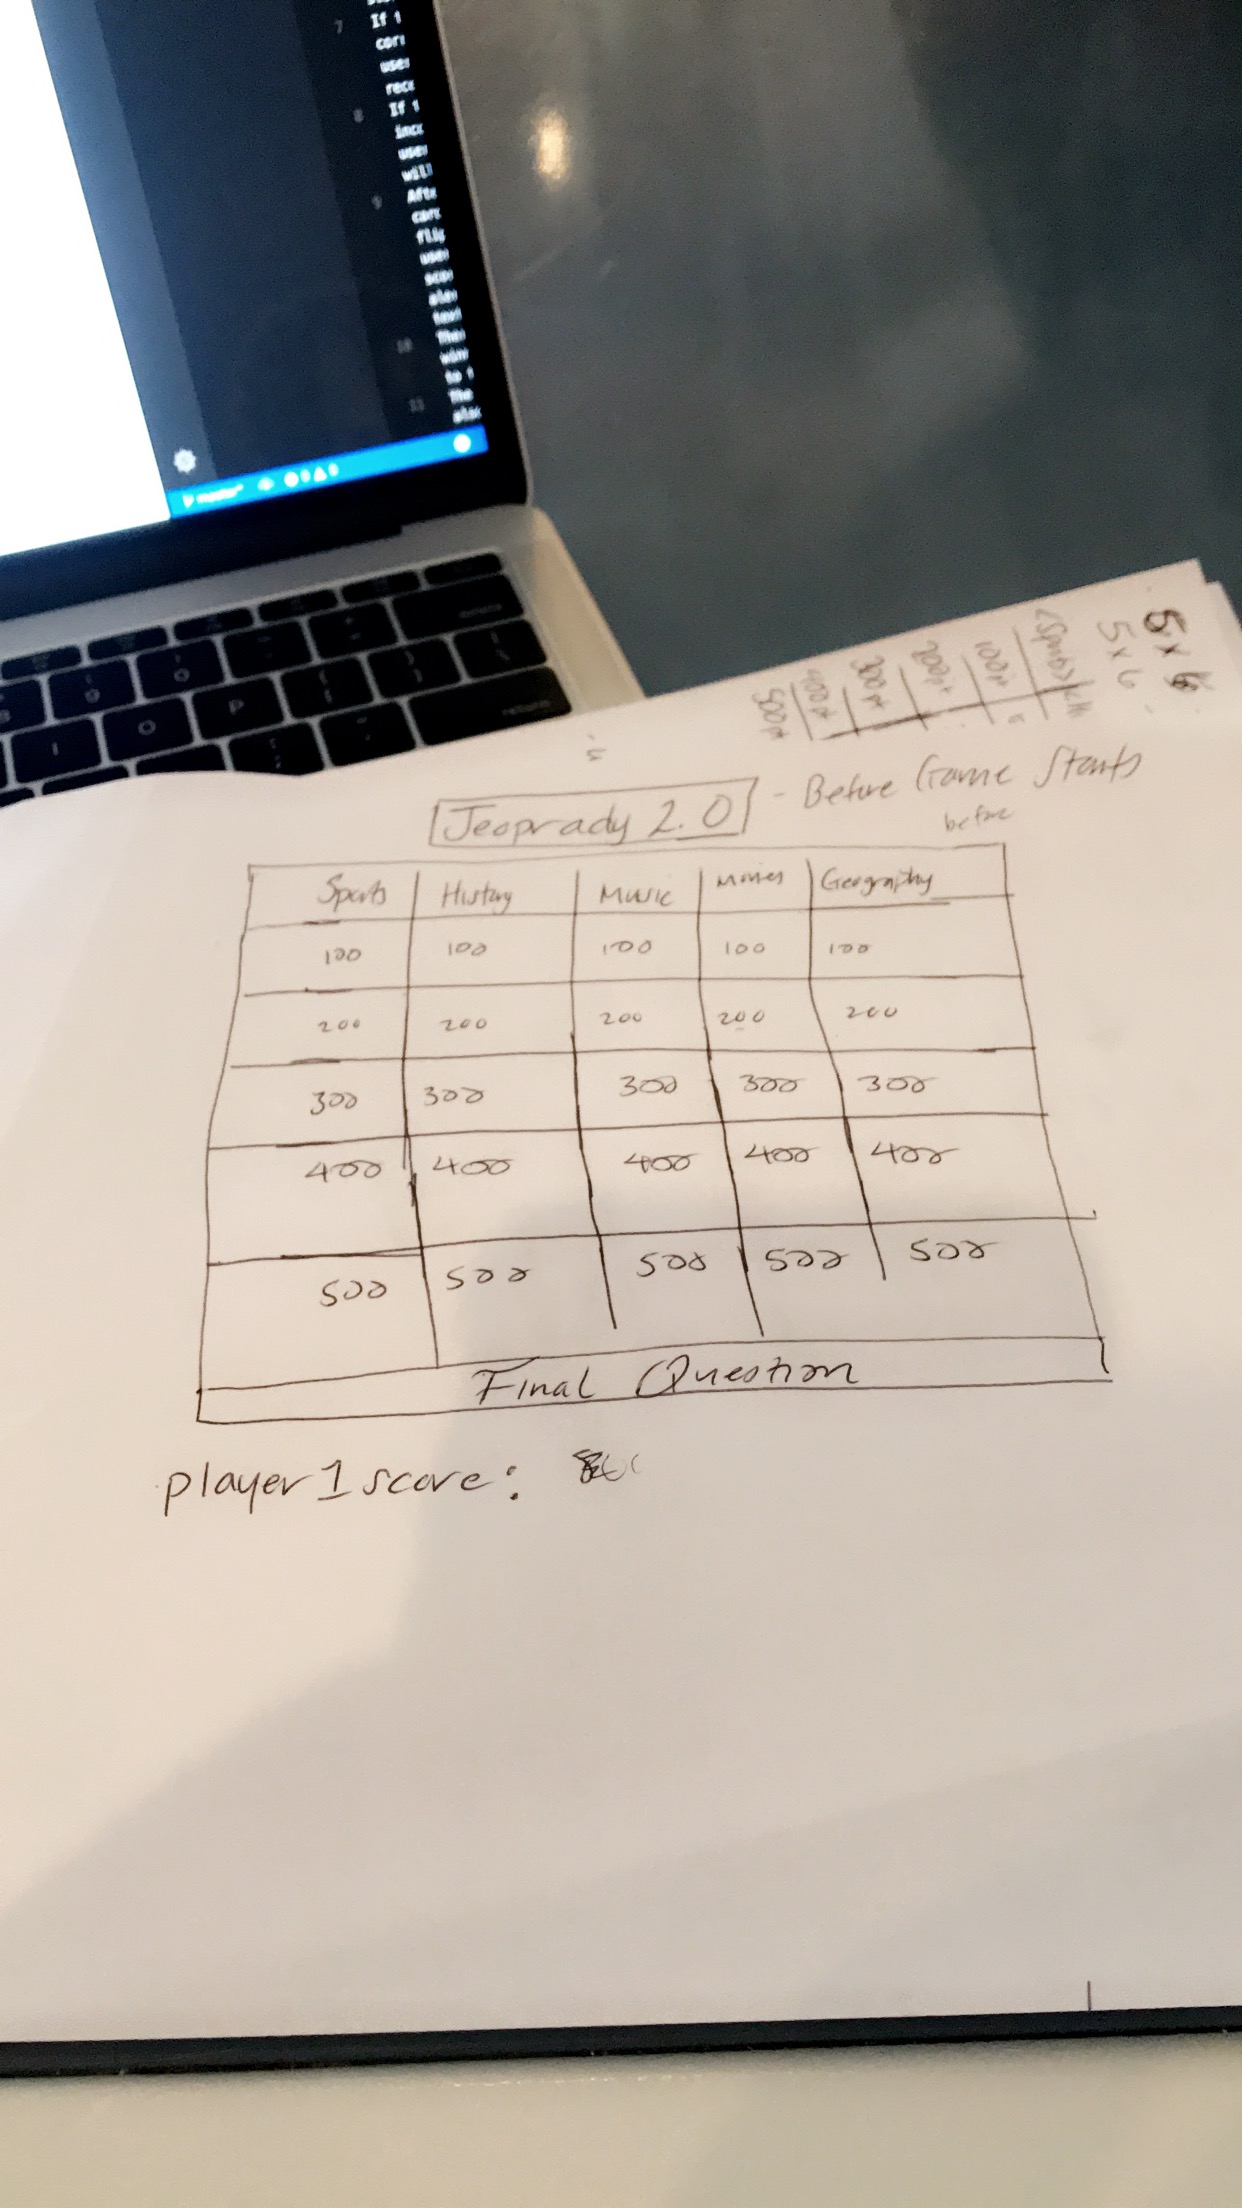 7
If t
corr
user
rece
8
If t
inco
user
will
9
Afte
card
flip
user
scor
aler
text
10
The
winn
to t
11
The
also
master*
delete
return
P
O
I
5 x 6
5 x 6
100pt
200pt
300pt
400pt
500pt
Jeoprady 2.0 - Before Game Starts
before
Sports History Music Movies Geography
100 100 100 100 100
200 200 200 200 200
300 300 300 300 300
400 400 400 400 400
500 500 500 500 500
Final Question
player 1 score: